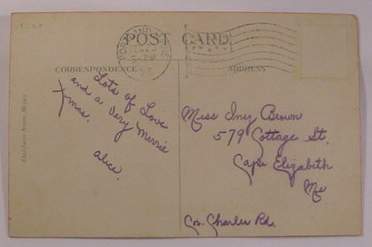 POST CARD
CORRESPONDENCE
ADDRESS
Lots of Love
and a Very Merrie
Xmas.
Alice.
Miss Inez Brown
579 Cottage St.
Cape Elizabeth
Me
Cor. Charles Rd.